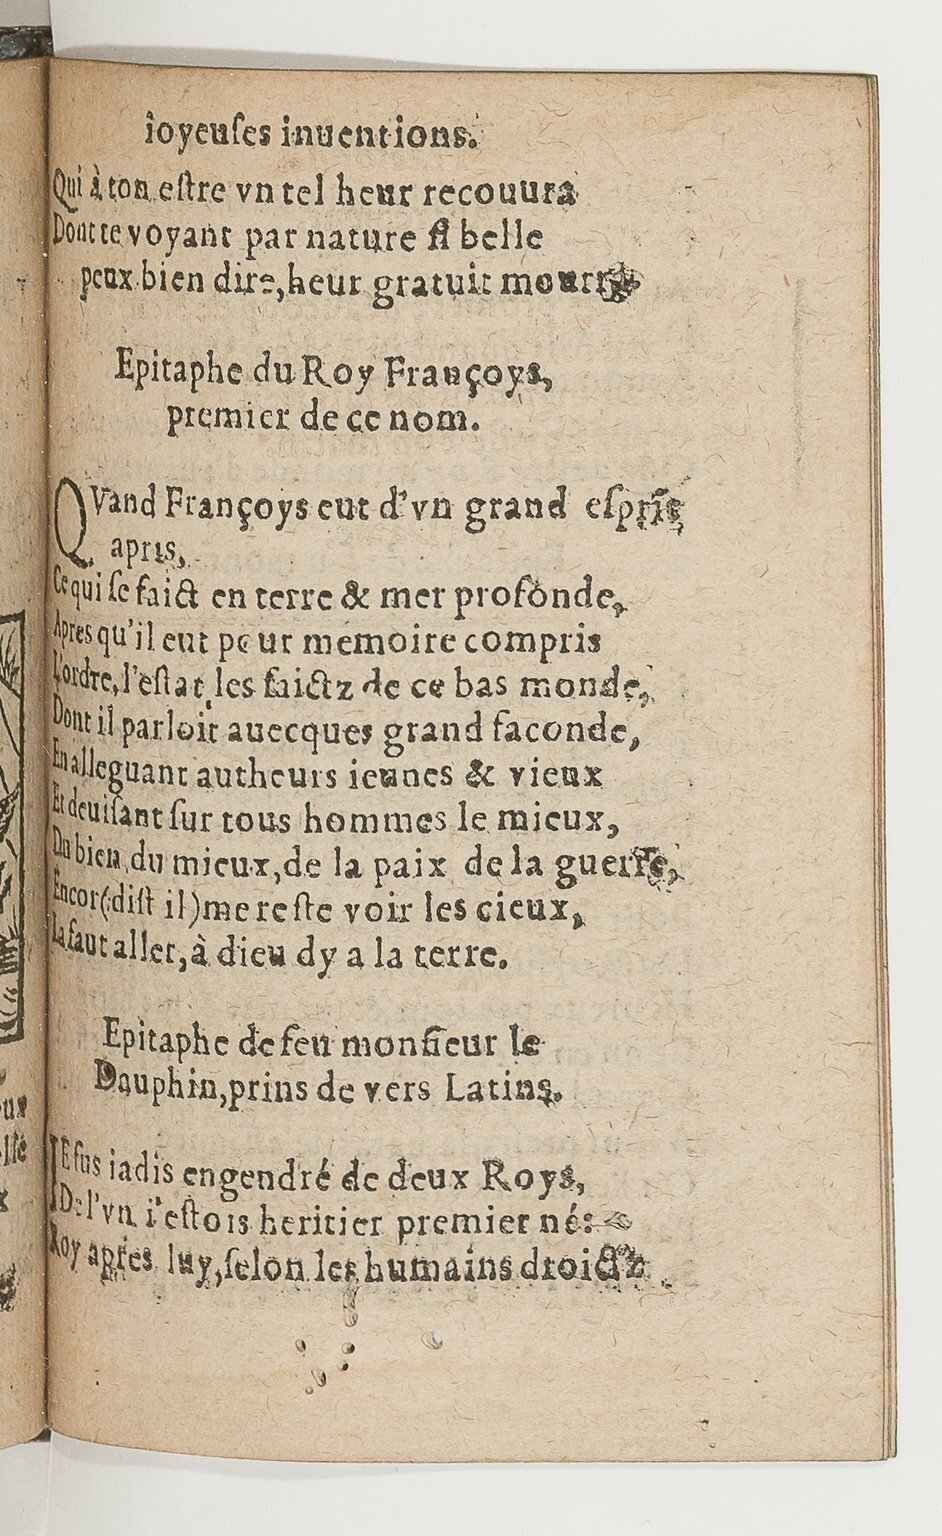 ioyeuſes inuentions.
Qui à ton eſtre vn tel heur recouura
Dont te voyant par nature ſi belle
peux bien dire, heur gratuit
Epitaphe du Roy Françoys,
premier de ce nom.
QVand Françoys eut d'vn grand eſprit
apris,
Ce qui ſe faict en terre & mer profonde,
Apres qu'il eut pour memoire compris
L'ordre, l'eſtat, les faictz de ce bas monde,
Dont il parloit auecques grand faconde,
En alleguant autheurs ieunes & vieux
Et deuiſant ſur tous hommes le mieux,
Du bien, du mieux, de la paix de la guerre,
Encor (diſt il) me reſte voir les cieux,
La faut aller, à dieu dy a la terre.
Epitaphe de feu monſieur le
Dauphin, prins de vers Latins.
IE fus iadis engendré de deux Roys,
De l'vn i'eſtois heritier premier né:
Roy apres luy, ſelon les humains droictz